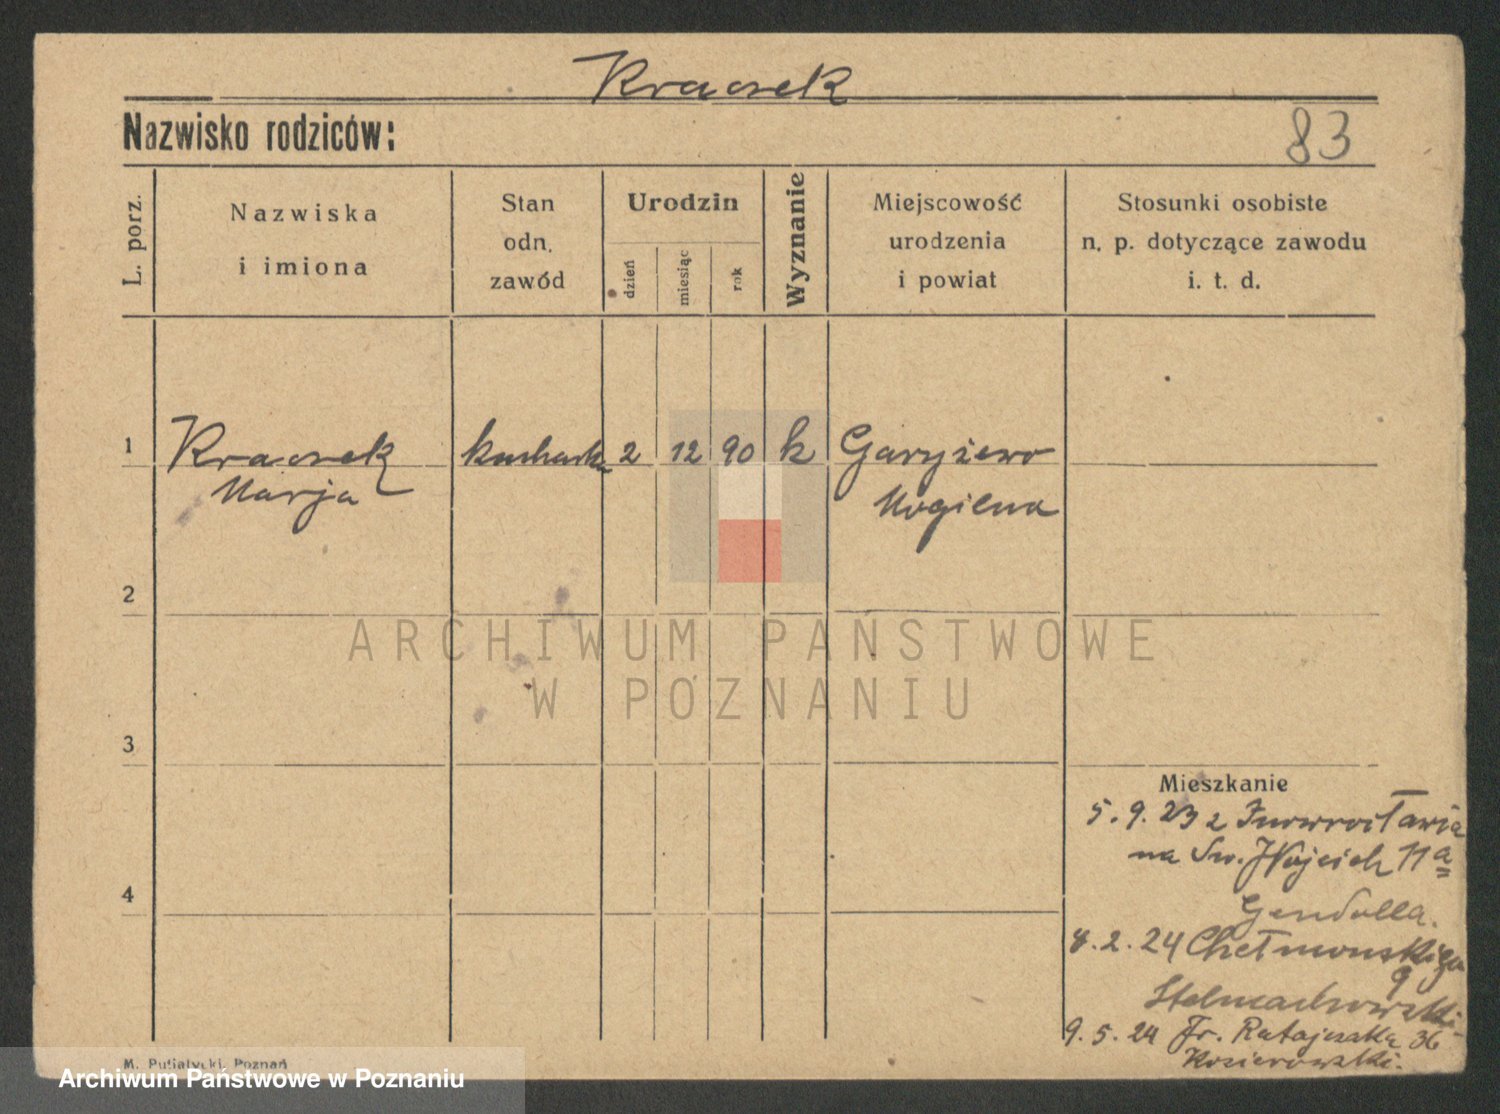 Kraczek
Nazwisko rodziców:
83
L. porz.
Nazwiska
i imiona
Stan
odn.
zawód
Urodzin
dzień
miesiąc
rok
Wyznanie
Miejscowość
urodzenia
i powiat
Stosunki osobiste
n. p. dotyczące zawodu
i. t. d.
1 Kraczek kucharka 2 12 90 k Garyżewo
Marja Mogilna
2
ARCHIWUM PAŃSTWOWE
W POZNANIU
3
Mieszkanie
5. 9. 23 z Inowrocławia
na Św. Wojciech 11a
4
Gendolla.
8. 2. 24 Chełmońskiego
9
Stelmachowski.
9. 5. 24 Fr. Ratajczaka 36
Kosierowski.
M. Putiatycki, Poznań
Archiwum Państwowe w Poznaniu